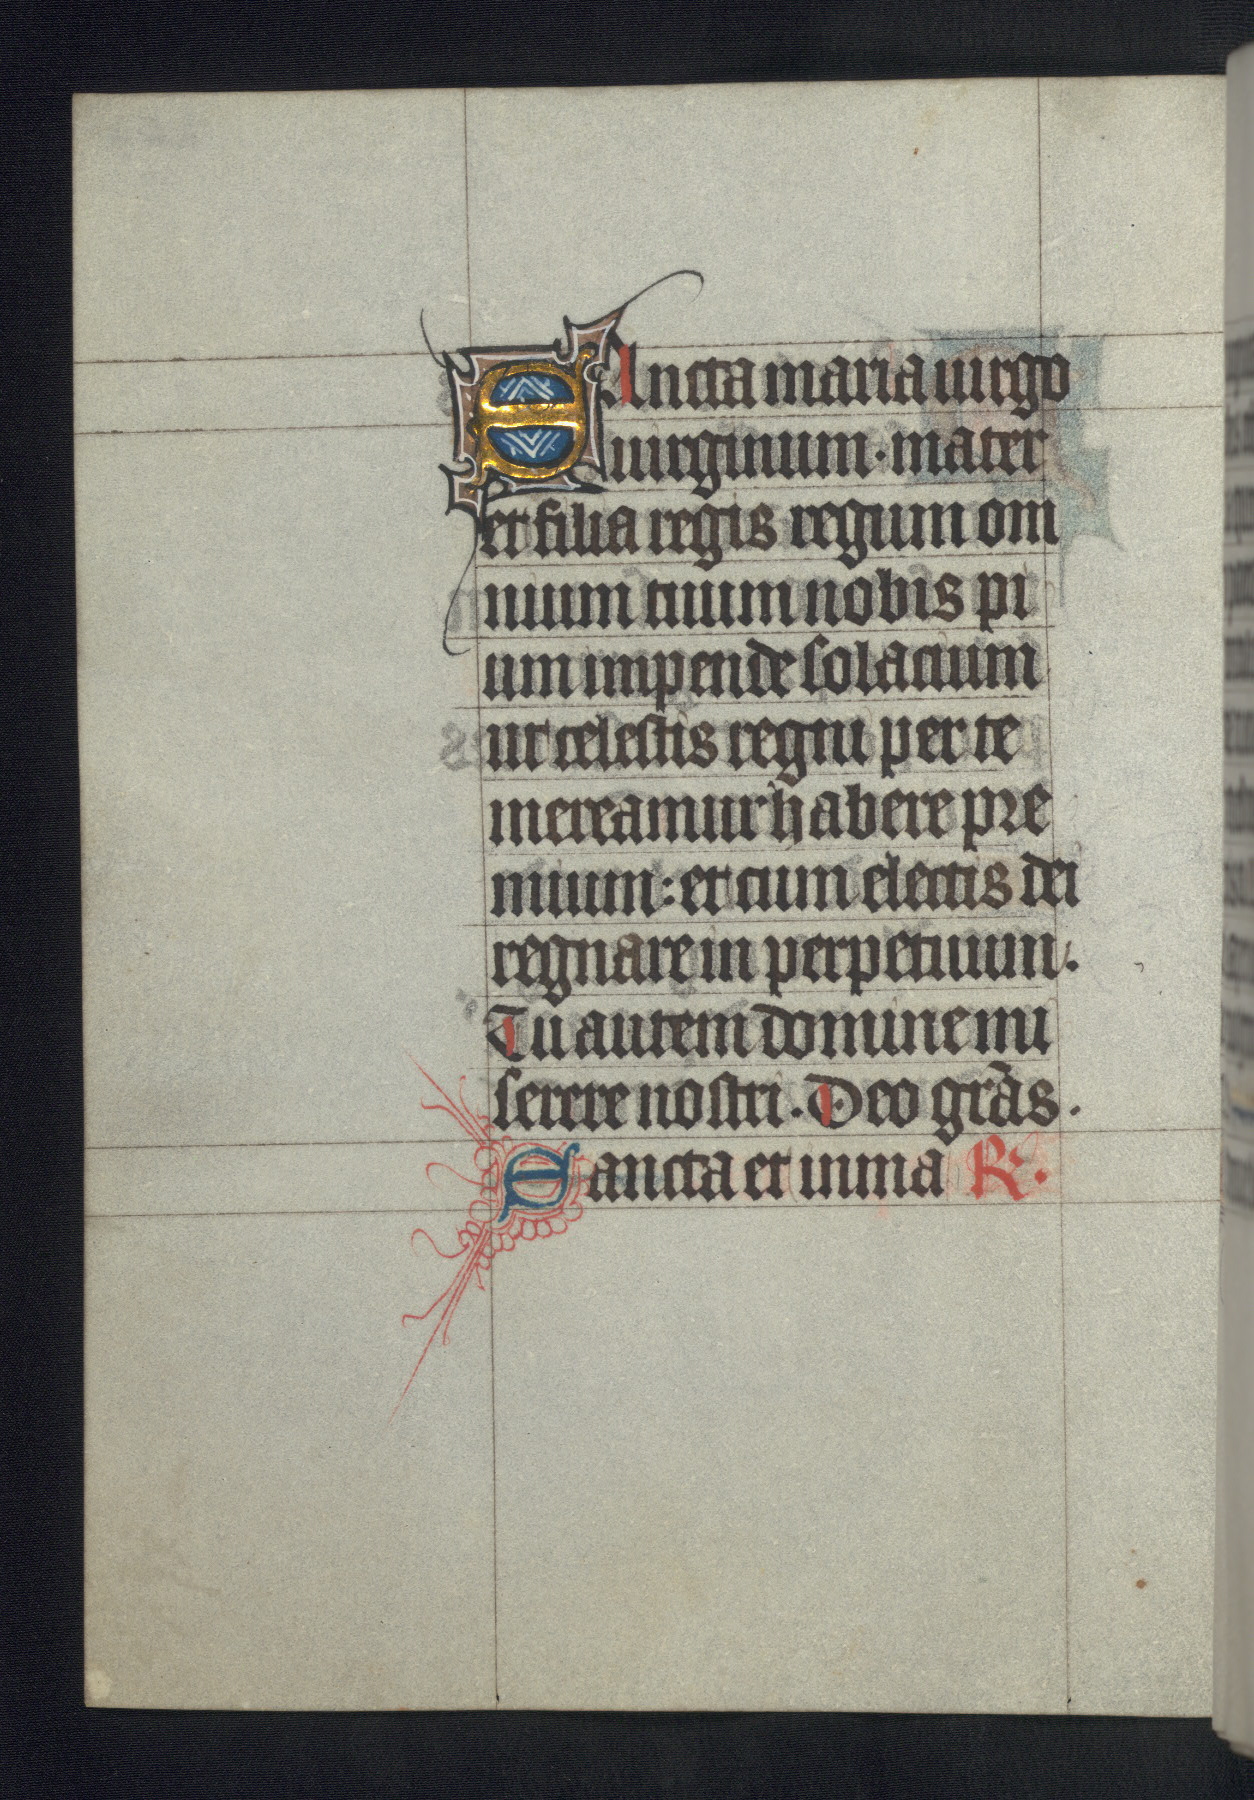 SAncta maria uirgo
uirginum · mater
et filia regis regum om
nium tuum nobis pi
um impende solacium
ut celestis regni per te
mereamur habere pre
mium: et cum electis dei
regnare in perpetuum.
Tu autem domine mi
serere nostri. Deo grās.
Sancta et inma R.